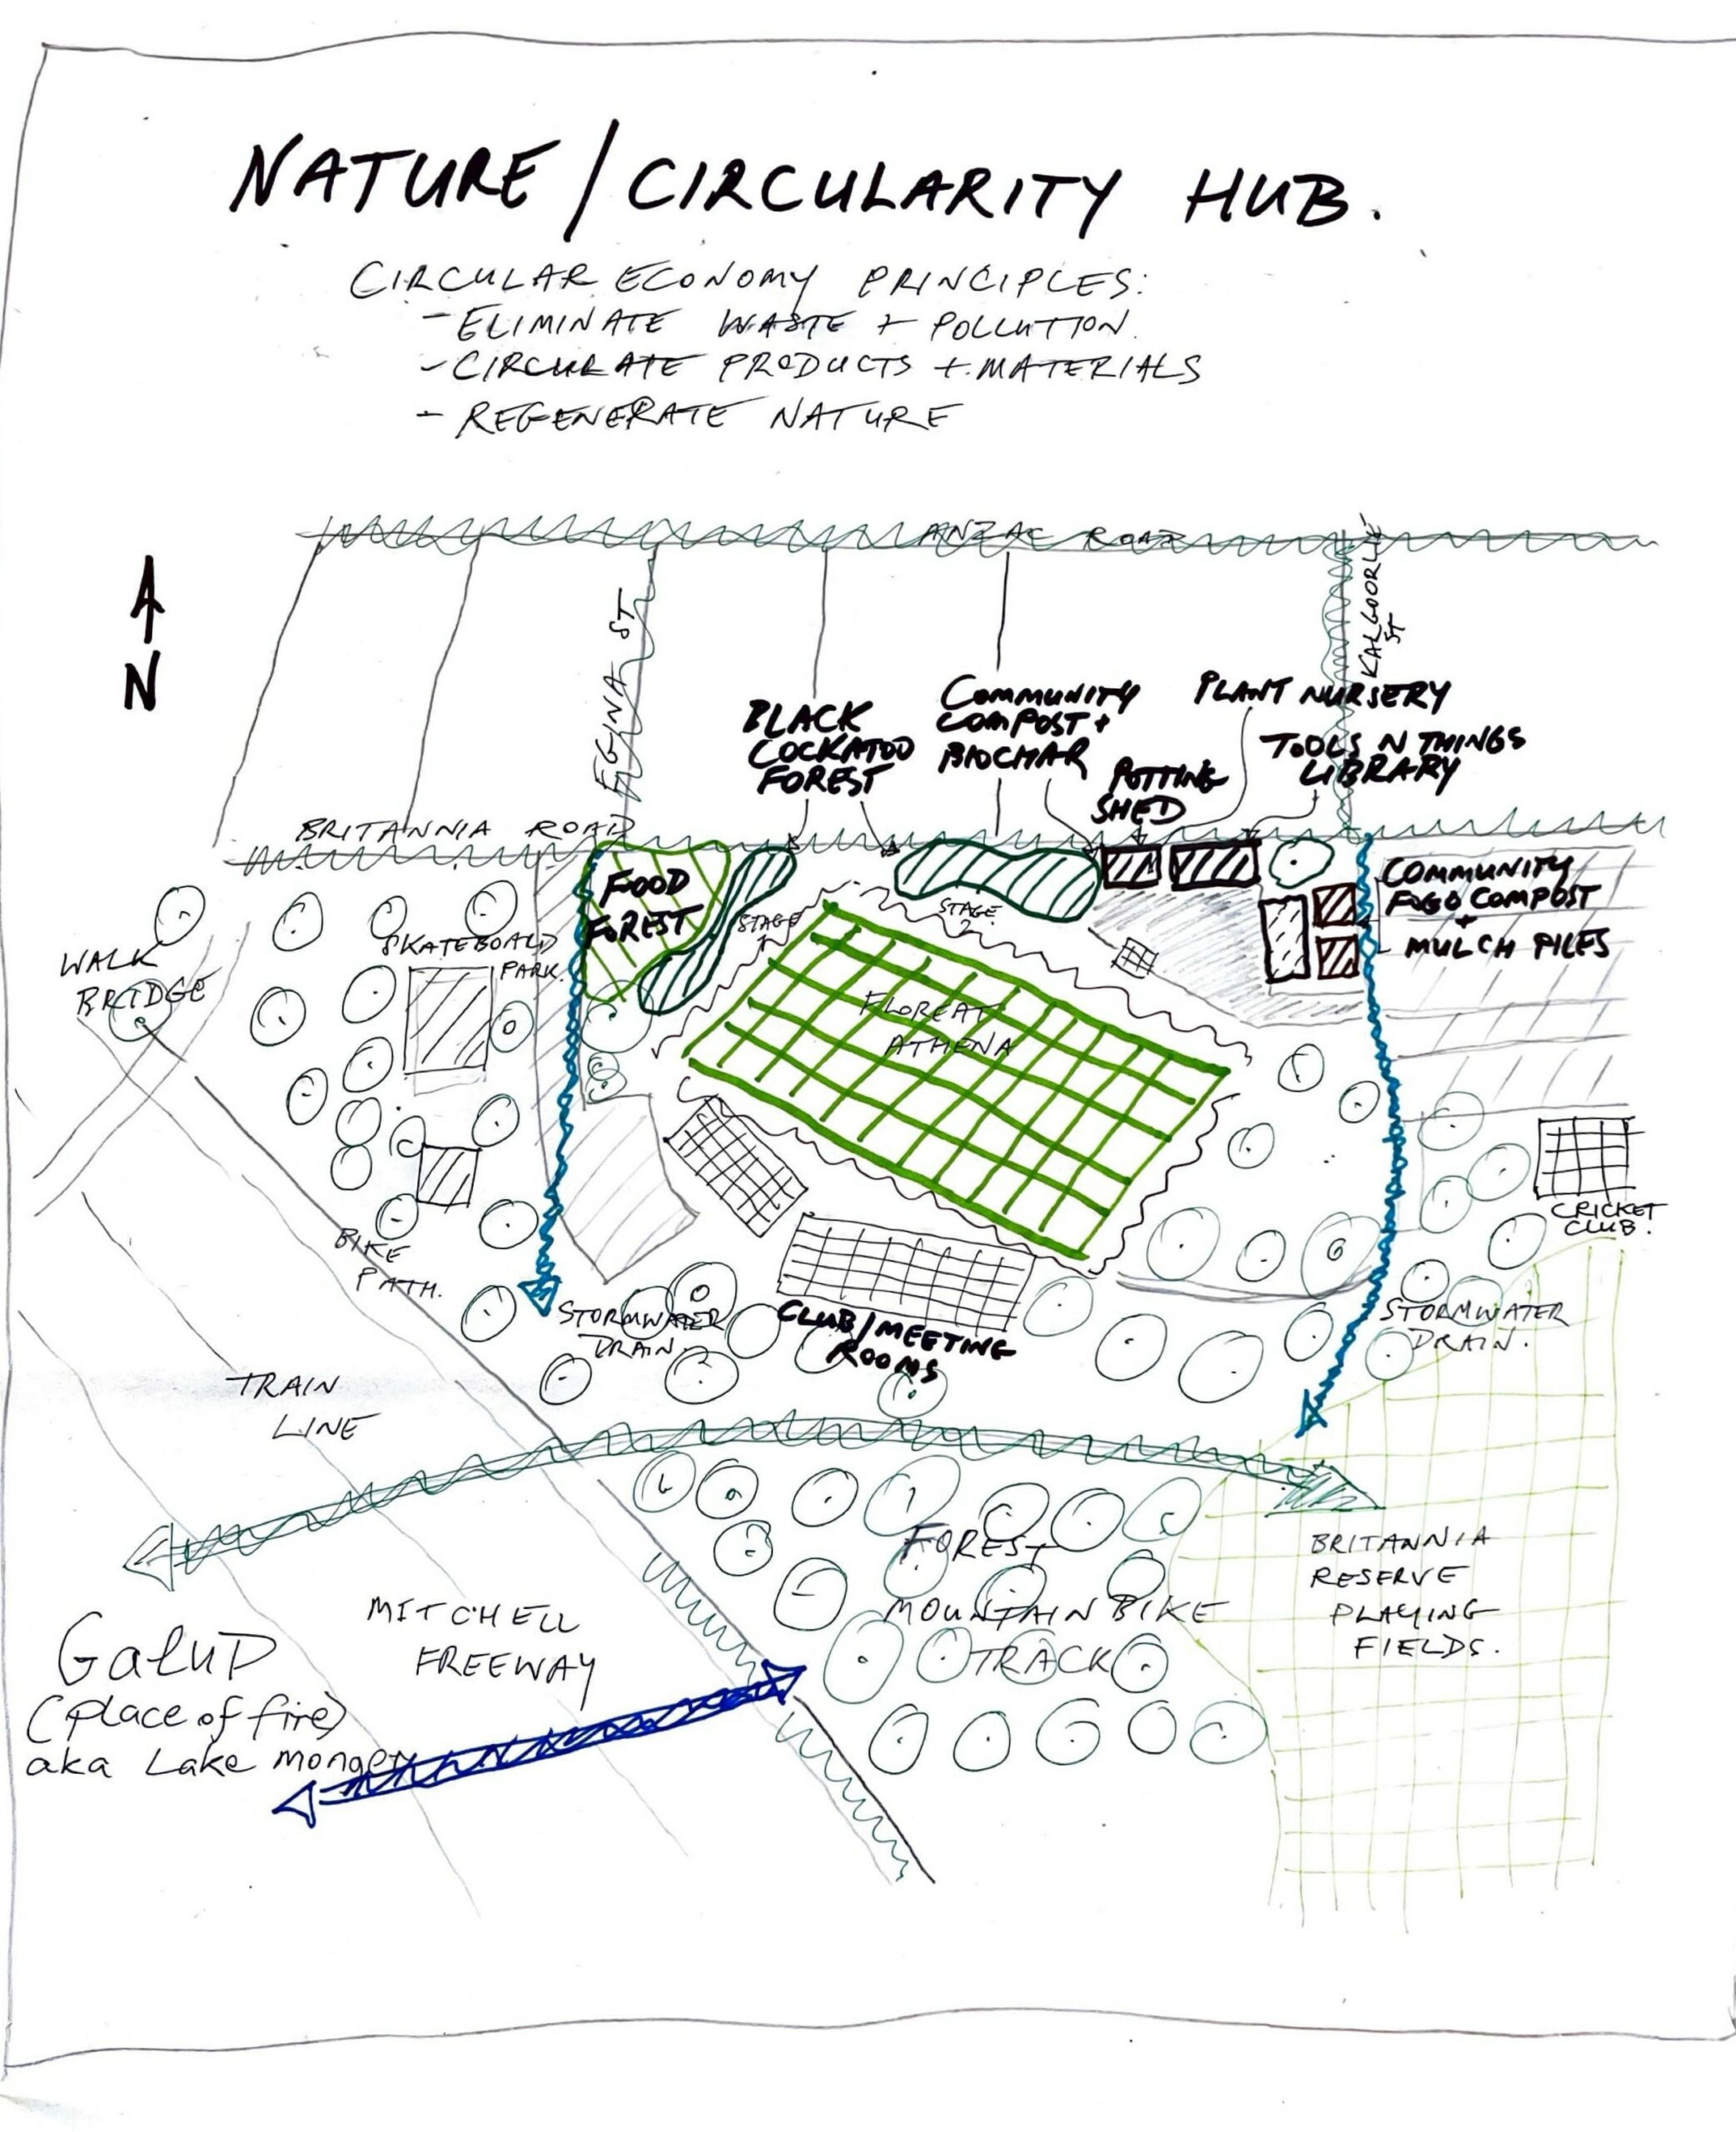 NATURE / CIRCULARITY HUB.
CIRCULAR ECONOMY PRINCIPLES:
- ELIMINATE WASTE + POLLUTION.
- CIRCULATE PRODUCTS + MATERIALS
- REGENERATE NATURE
ANZAC ROAD
N
EGINA ST
KALGOORLIE
ST
BLACK
COCKATOO
FOREST
COMMUNITY
COMPOST +
BIOCHAR
PLANT NURSERY
POTTING
SHED
TOOLS N THINGS
LIBRARY
BRITANNIA ROAD
FOOD
FOREST
STAGE
1
STAGE
2
COMMUNITY
FOGO COMPOST
+
MULCH PILES
WALK
BRIDGE
SKATEBOARD
PARK
FLOREAT
ATHENA
CRICKET
CLUB.
BIKE
PATH.
STORMWATER
DRAIN.
CLUB/MEETING
ROOMS
STORMWATER
DRAIN.
TRAIN
LINE
FOREST
MOUNTAIN BIKE
TRACK
BRITANNIA
RESERVE
PLAYING
FIELDS.
MITCHELL
FREEWAY
GALUP
(place of fire)
aka Lake monger